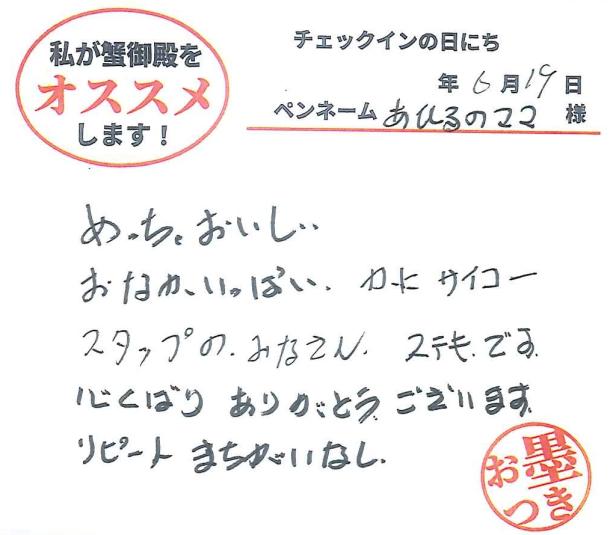 私が蟹御殿を
オススメ
します！
チェックインの日にち
年6月19日
ペンネーム あひるのママ 様
めっちゃおいしい
おなかいっぱい。かに サイコー
スタップの、みなさん、ステキ、です
心くばり ありがとう ございます
リピート まちがいなし。
お墨
つき